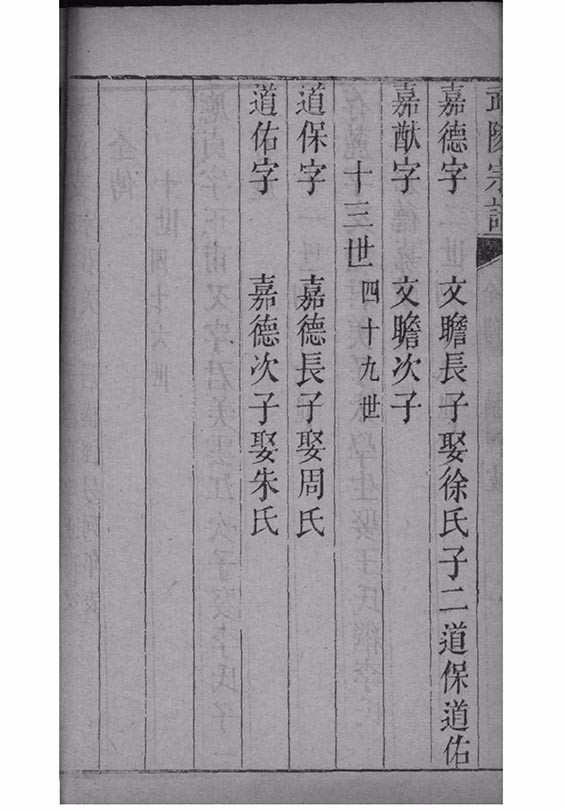 武陵宗譜
嘉德字　文瞻長子娶徐氏子二道保道佑
嘉猷字　文瞻次子
十三世　四十九世
道保字　嘉德長子娶周氏
道佑字　嘉德次子娶朱氏